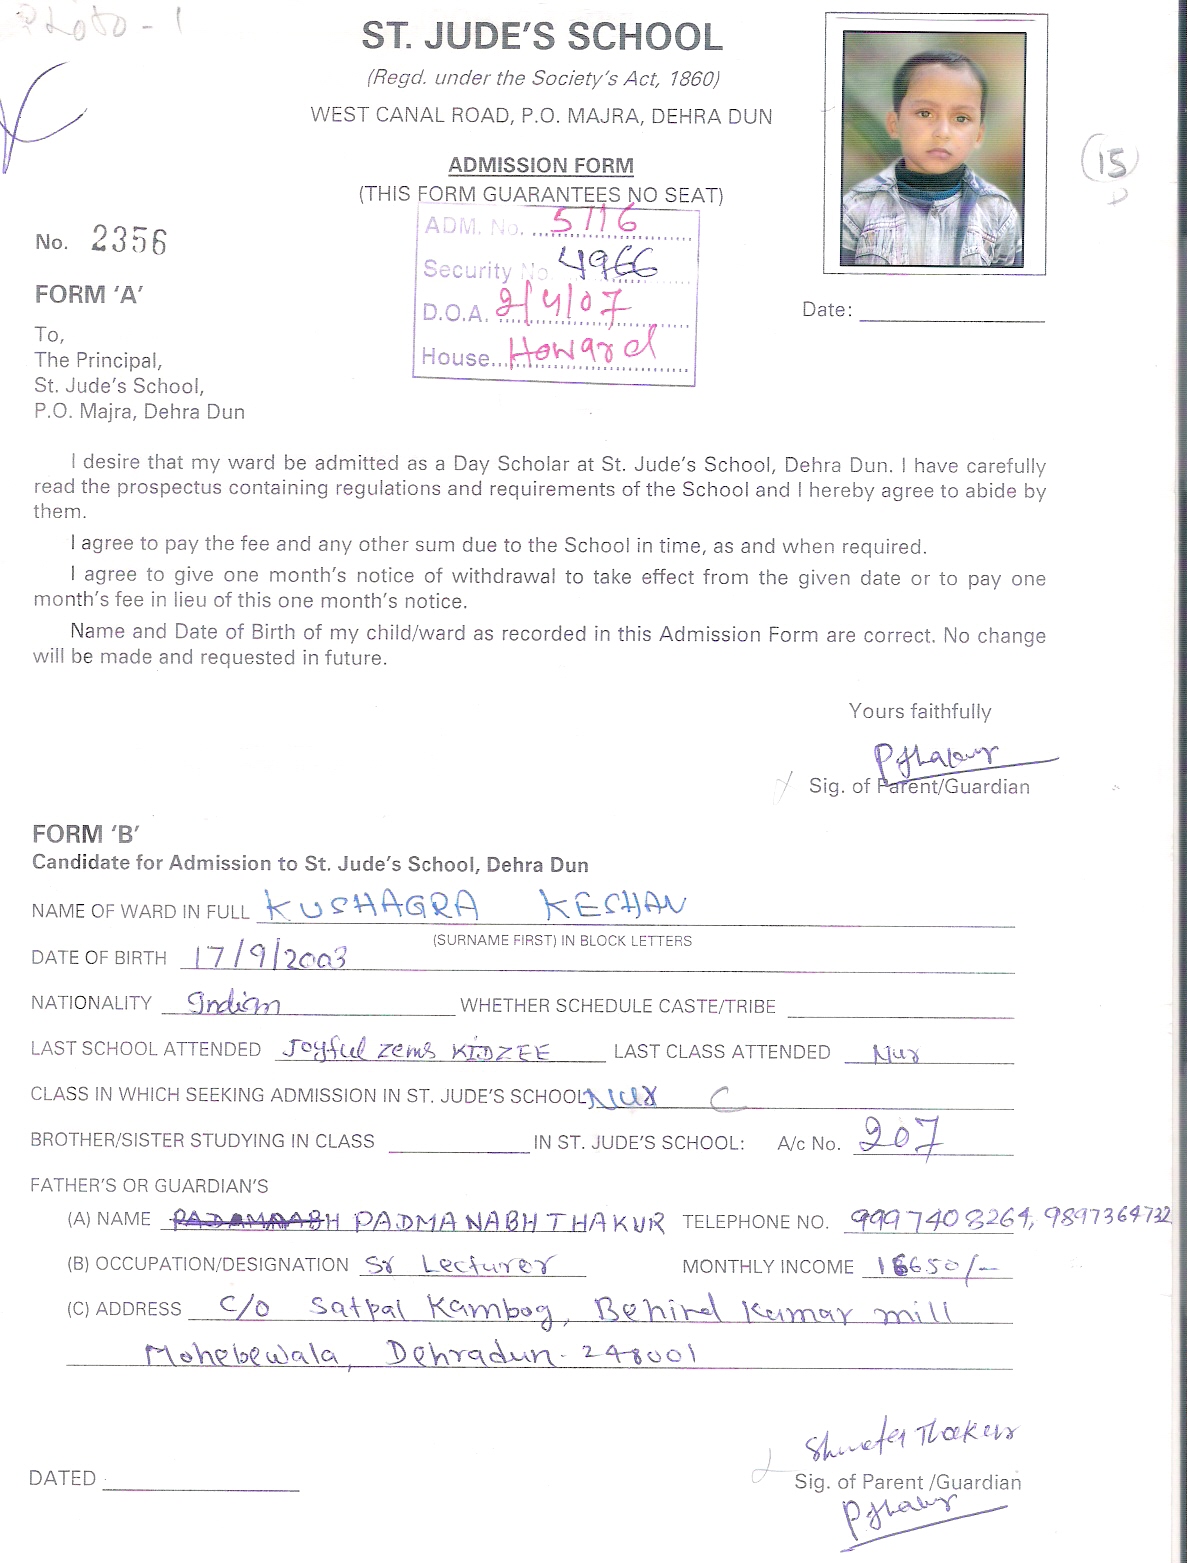 Photo - 1
ST. JUDE'S SCHOOL
(Regd. under the Society's Act, 1860)
WEST CANAL ROAD, P.O. MAJRA, DEHRA DUN
15
ADMISSION FORM
(THIS FORM GUARANTEES NO SEAT)
ADM. No. 5716
No. 2356
Security No. 4966
FORM 'A'
D.O.A. 2/4/07
Date:
House... Howard
To,
The Principal,
St. Jude's School,
P.O. Majra, Dehra Dun
I desire that my ward be admitted as a Day Scholar at St. Jude's School, Dehra Dun. I have carefully
read the prospectus containing regulations and requirements of the School and I hereby agree to abide by
them.
I agree to pay the fee and any other sum due to the School in time, as and when required.
I agree to give one month's notice of withdrawal to take effect from the given date or to pay one
month's fee in lieu of this one month's notice.
Name and Date of Birth of my child/ward as recorded in this Admission Form are correct. No change
will be made and requested in future.
Yours faithfully
PThakur
Sig. of Parent/Guardian
FORM 'B'
Candidate for Admission to St. Jude's School, Dehra Dun
NAME OF WARD IN FULL KUSHAGRA KESHAV
(SURNAME FIRST) IN BLOCK LETTERS
DATE OF BIRTH 17/9/2003
NATIONALITY Indian WHETHER SCHEDULE CASTE/TRIBE
LAST SCHOOL ATTENDED Joyful Zems KIDZEE LAST CLASS ATTENDED Nur
CLASS IN WHICH SEEKING ADMISSION IN ST. JUDE'S SCHOOL NUR C
BROTHER/SISTER STUDYING IN CLASS IN ST. JUDE'S SCHOOL: A/c No. 207
FATHER'S OR GUARDIAN'S
(A) NAME PADMANABH THAKUR TELEPHONE NO. 9997408264, 9897364732
(B) OCCUPATION/DESIGNATION Sr Lecturer MONTHLY INCOME 16650/-
(C) ADDRESS C/O Satpal Kambog, Behind Kumar mill
Mohebewala, Dehradun. 248001
Shweta Thakur
DATED Sig. of Parent /Guardian
PThakur